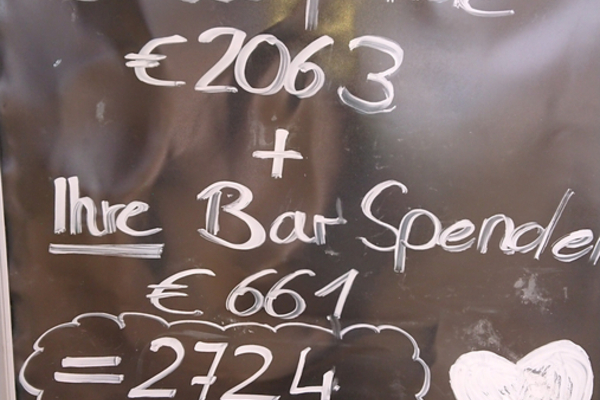 €2063
+
Ihre Bar Spenden
€ 661
= 2724